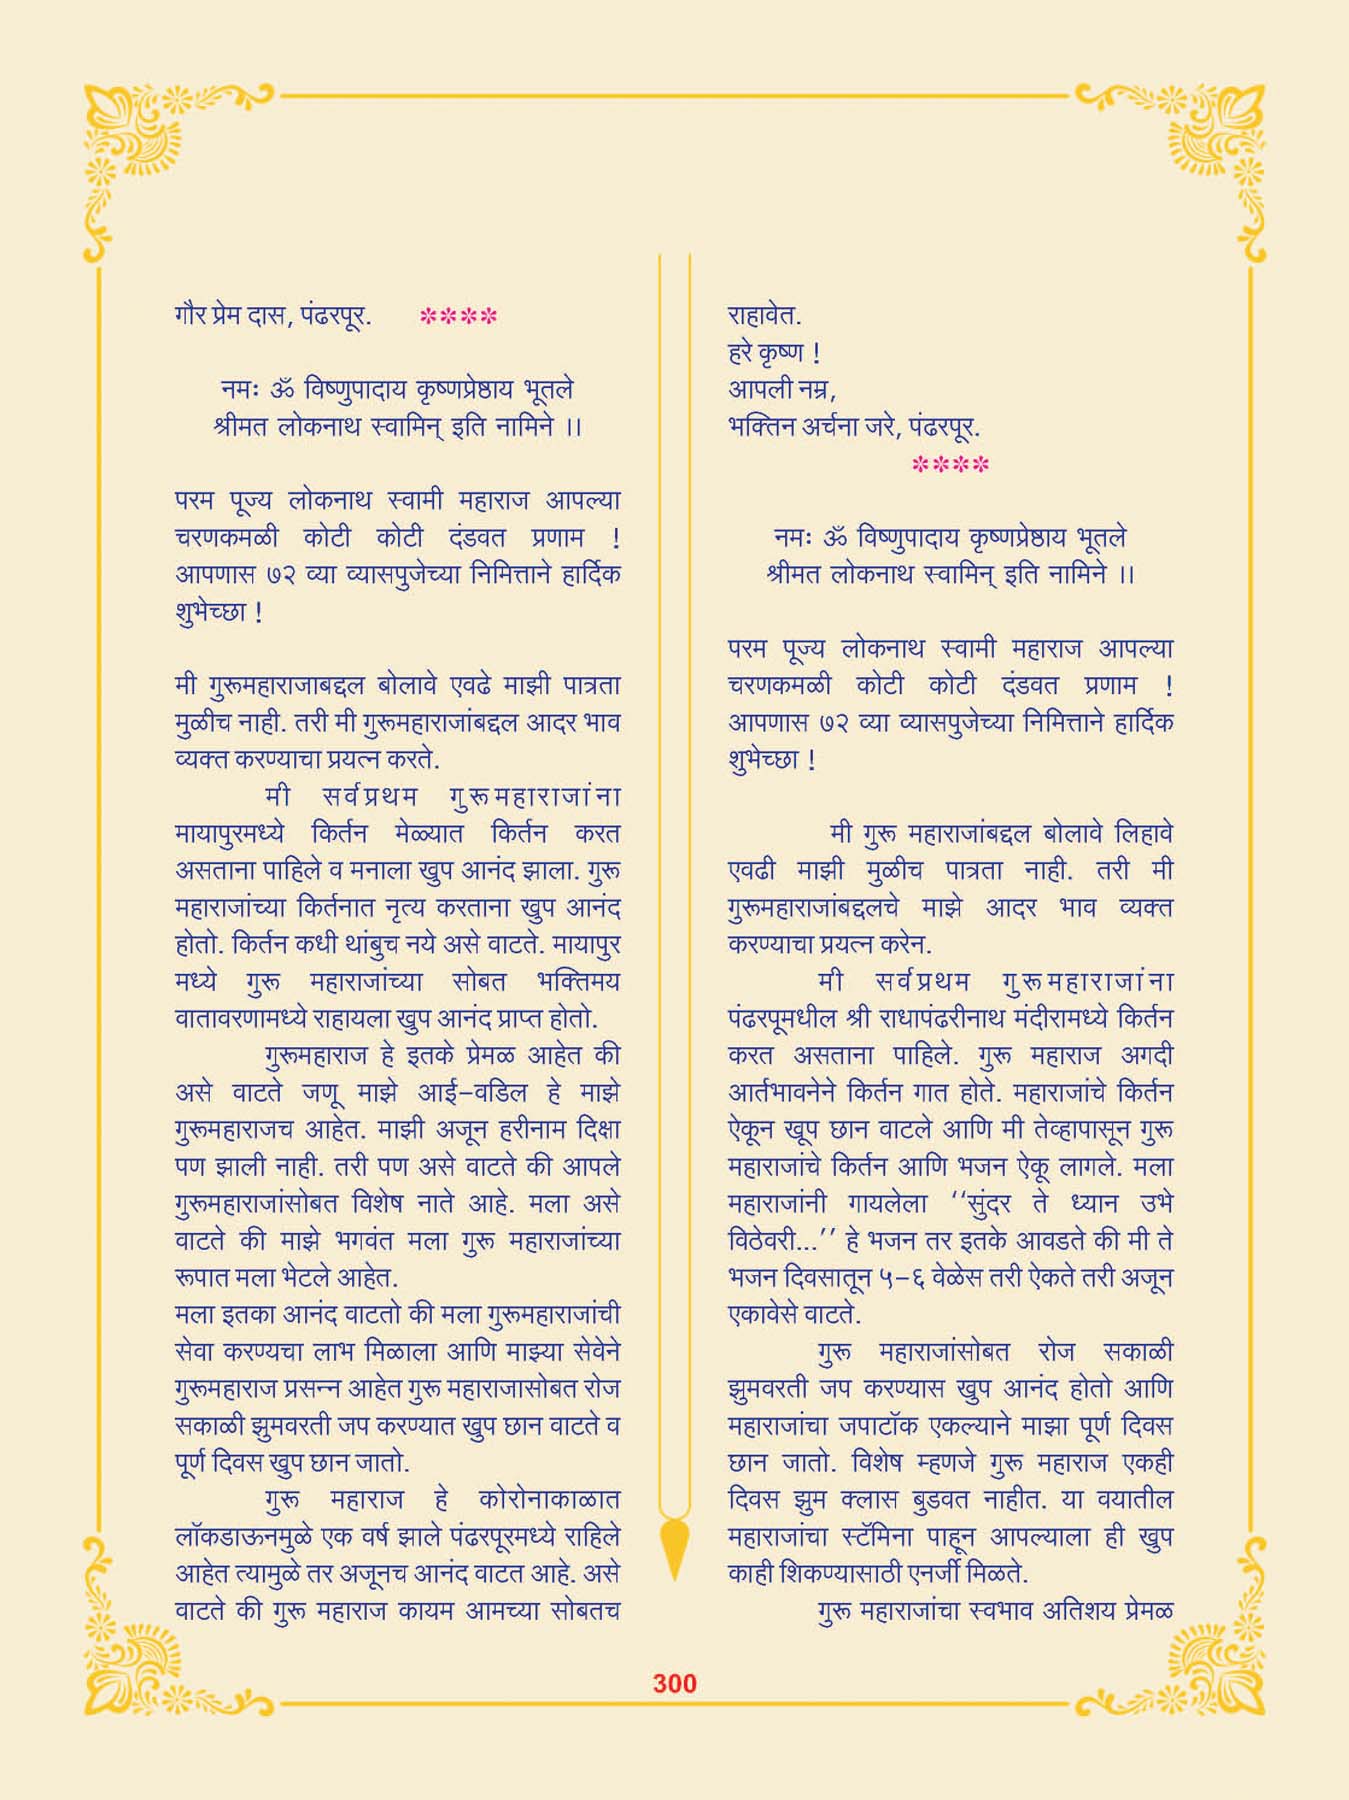 गौर प्रेम दास, पंढरपूर. ****
नमः ॐ विष्णुपादाय कृष्णप्रेष्ठाय भूतले
श्रीमत लोकनाथ स्वामिन् इति नामिने ।।
परम पूज्य लोकनाथ स्वामी महाराज आपल्या
चरणकमळी कोटी कोटी दंडवत प्रणाम !
आपणास ७२ व्या व्यासपुजेच्या निमित्ताने हार्दिक
शुभेच्छा !
मी गुरूमहाराजाबद्दल बोलावे एवढे माझी पात्रता
मुळीच नाही. तरी मी गुरूमहाराजांबद्दल आदर भाव
व्यक्त करण्याचा प्रयत्न करते.
मी सर्वप्रथम गुरूमहाराजांना
मायापुरमध्ये किर्तन मेळ्यात किर्तन करत
असताना पाहिले व मनाला खुप आनंद झाला. गुरू
महाराजांच्या किर्तनात नृत्य करताना खुप आनंद
होतो. किर्तन कधी थांबुच नये असे वाटते. मायापुर
मध्ये गुरू महाराजांच्या सोबत भक्तिमय
वातावरणामध्ये राहायला खुप आनंद प्राप्त होतो.
गुरूमहाराज हे इतके प्रेमळ आहेत की
असे वाटते जणू माझे आई-वडिल हे माझे
गुरूमहाराजच आहेत. माझी अजून हरीनाम दिक्षा
पण झाली नाही. तरी पण असे वाटते की आपले
गुरूमहाराजांसोबत विशेष नाते आहे. मला असे
वाटते की माझे भगवंत मला गुरू महाराजांच्या
रूपात मला भेटले आहेत.
मला इतका आनंद वाटतो की मला गुरूमहाराजांची
सेवा करण्यचा लाभ मिळाला आणि माझ्या सेवेने
गुरूमहाराज प्रसन्न आहेत गुरू महाराजासोबत रोज
सकाळी झुमवरती जप करण्यात खुप छान वाटते व
पूर्ण दिवस खुप छान जातो.
गुरू महाराज हे कोरोनाकाळात
लॉकडाऊनमुळे एक वर्ष झाले पंढरपूरमध्ये राहिले
आहेत त्यामुळे तर अजूनच आनंद वाटत आहे. असे
वाटते की गुरू महाराज कायम आमच्या सोबतच
राहावेत.
हरे कृष्ण !
आपली नम्र,
भक्तिन अर्चना जरे, पंढरपूर.
****
नमः ॐ विष्णुपादाय कृष्णप्रेष्ठाय भूतले
श्रीमत लोकनाथ स्वामिन् इति नामिने ।।
परम पूज्य लोकनाथ स्वामी महाराज आपल्या
चरणकमळी कोटी कोटी दंडवत प्रणाम !
आपणास ७२ व्या व्यासपुजेच्या निमित्ताने हार्दिक
शुभेच्छा !
मी गुरू महाराजांबद्दल बोलावे लिहावे
एवढी माझी मुळीच पात्रता नाही. तरी मी
गुरूमहाराजांबद्दलचे माझे आदर भाव व्यक्त
करण्याचा प्रयत्न करेन.
मी सर्वप्रथम गुरूमहाराजांना
पंढरपूमधील श्री राधापंढरीनाथ मंदीरामध्ये किर्तन
करत असताना पाहिले. गुरू महाराज अगदी
आर्तभावनेने किर्तन गात होते. महाराजांचे किर्तन
ऐकून खूप छान वाटले आणि मी तेव्हापासून गुरू
महाराजांचे किर्तन आणि भजन ऐकू लागले. मला
महाराजांनी गायलेला ‘‘सुंदर ते ध्यान उभे
विठेवरी...’’ हे भजन तर इतके आवडते की मी ते
भजन दिवसातून ५-६ वेळेस तरी ऐकते तरी अजून
एकावेसे वाटते.
गुरू महाराजांसोबत रोज सकाळी
झुमवरती जप करण्यास खुप आनंद होतो आणि
महाराजांचा जपाटॉक एकल्याने माझा पूर्ण दिवस
छान जातो. विशेष म्हणजे गुरू महाराज एकही
दिवस झुम क्लास बुडवत नाहीत. या वयातील
महाराजांचा स्टॅमिना पाहून आपल्याला ही खुप
काही शिकण्यासाठी एनर्जी मिळते.
गुरू महाराजांचा स्वभाव अतिशय प्रेमळ
300